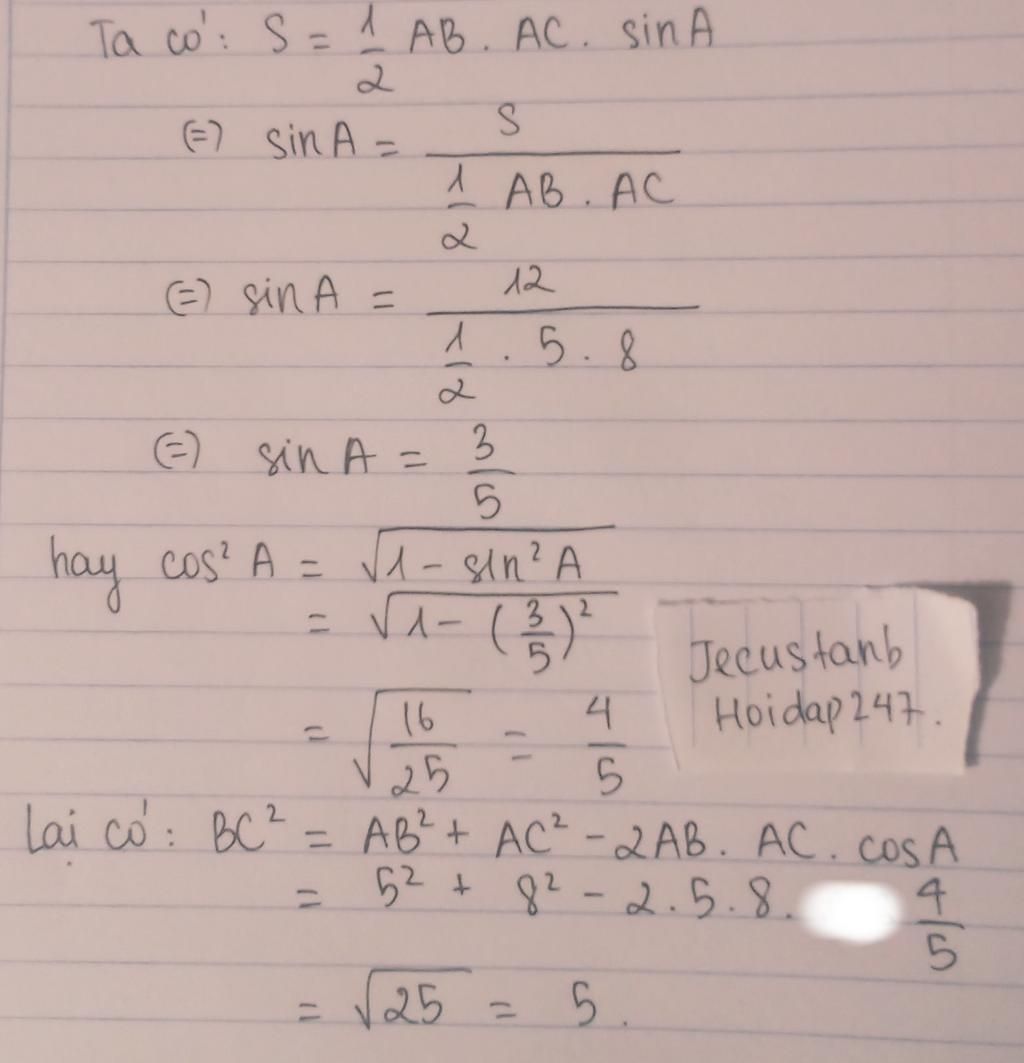 Ta có: S = 1/2 AB . AC . sinA
(=) sinA = S / (1/2 AB . AC)
(=) sinA = 12 / (1/2 . 5 . 8)
(=) sinA = 3/5
hay cos² A = √(1 - sin² A)
= √(1 - (3/5)²)
= √(16/25) = 4/5
Jecustanb
Hoidap247.
Lại có: BC² = AB² + AC² - 2AB . AC . cosA
= 5² + 8² - 2.5.8. 4/5
= √25 = 5.